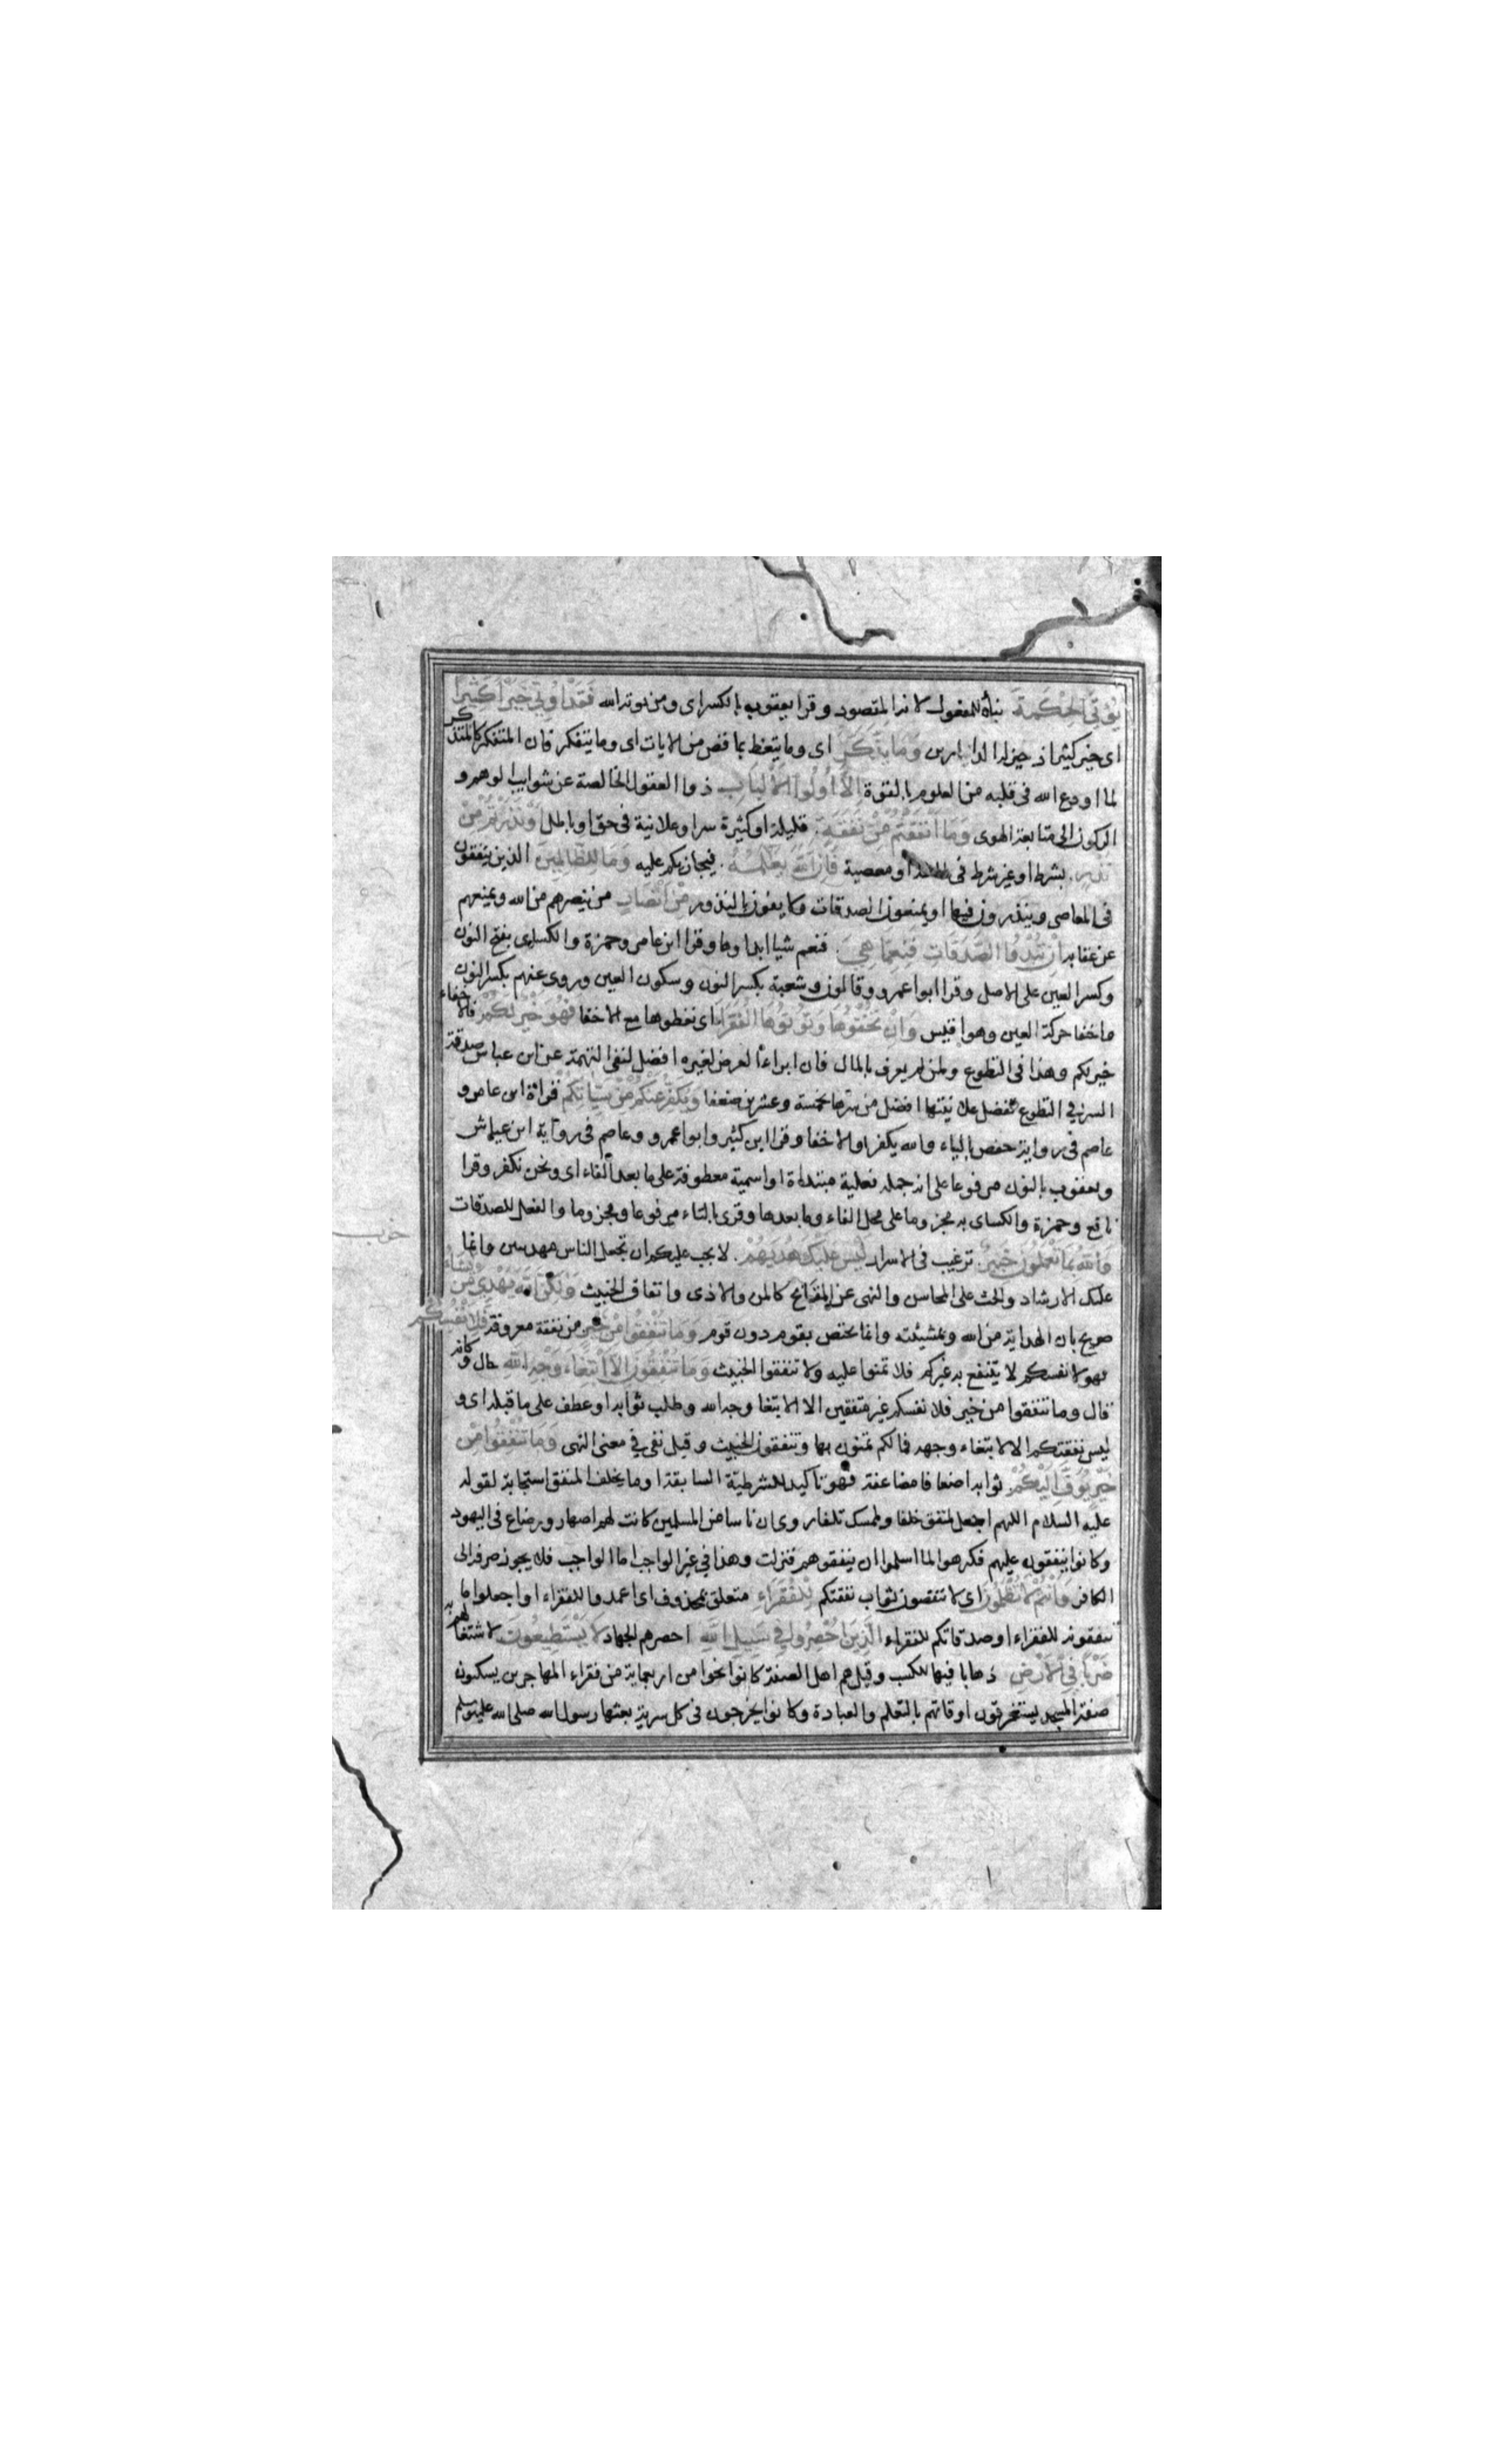 يُؤتَي الحِكمَةَ بناؤه للمفعول لانه المقصود وقرا يعقوب بالكسر اى ومن يوته الله فَقَدْ اُوتِيَ خَيْرًا كَثِيْرًا
اى خير كثير اذ حيز له خير الدارين وَمَا يَذَّكَّرُ اى وما يتعظ بما قص من الايات اى وما يتفكر فان المتفكر كالمتذكر
لما اودع الله فى قلبه من العلوم بالقوة اِلَّا اُولُوا الْاَلْبَابِ ذوا العقول الخالصة عن شوايب الوهم و
الركون الى متابعة الهوى وَمَا اَنْفَقْتُمْ مِنْ نَفَقَةٍ قليلة او كثيرة سرا وعلانية فى حق او باطل اَوْ نَذَرْتُمْ مِنْ
نَذْرٍ بشرط او غير شرط فى طاعة او معصية فَاِنَّ اللهَ يَعْلَمُهُ فيجازيكم عليه وَمَا لِلظَّالِمِينَ الذين ينفقون
فى المعاصى وينذرون فيها او يمنعون الصدقات ولا يفون بالنذور مِنْ اَنْصَارٍ من ينصرهم من الله ويمنعهم
عن عقابه اِنْ تُبْدُوا الصَّدَقَاتِ فَنِعِمَّا هِيَ فنعم شيا ابداوها وقرا ابن عامر وحمزة والكسايى بفتح النون
وكسر العين على الاصل وقرا ابوا عمرو وقالون وشعبة بكسر النون وسكون العين وروى عنهم بكسر النون
واخفا حركة العين وهو اقيس وَاِنْ تُخْفُوهَا وَتُوتُوهَا الْفُقَرَاءَ اى تعطوها مع الاخفا فَهُوَ خَيْرٌ لَكُمْ فالاخفاء
خير لكم وهذا فى التطوع ولمن لم يعرف بالمال فان ابداء الفرض لغيره افضل لنفى التهمة عن ابن عباس صدقة
السر في التطوع تفضل علانيتها افضل من سرها بخمسة وعشرين ضعفا وَيُكَفِّرُ عَنْكُمْ مِنْ سَيِّاٰتِكُمْ قراءة ابن عامر و
عاصم فى رواية حفص بالياء والله يكفر او الاخفا وقرا ابن كثير وابوا عمرو وعاصم فى رواية ابن عياش
ويعقوب بالنون مرفوعا على انه جملة فعلية مبتداة او اسمية معطوفة على ما بعد الفاء اى ونحن نكفر وقرا
نافع وحمزة والكساى به مجزوما على محل الفاء وما بعدها وقرى بالتاء مرفوعا ومجزوما والفعل للصدقات
وَاللهُ بِمَا تَعْمَلُونَ خَبِيْرٌ ترغيب فى الاسرار لَيْسَ عَلَيْكَ هُدٰيهُمْ لا يجب عليكم ان تجعل الناس مهديين وانما
عليك الارشاد والحث على المحاسن والنهى عن المقابح كالمن والاذى وانفاق الخبيث وَلٰكِنَّ اللهَ يَهْدِى مَنْ يَشَاءُ
صريح بان الهداية من الله وبمشيئته وانما يختص بقوم دون قوم وَمَا تُنْفِقُوا مِنْ خَيْرٍ من نفقة معروفة فَلِاَنْفُسِكُمْ
فهو لانفسكم لا ينتفع به غيركم فلا تمنوا عليه ولا تنفقوا الخبيث وَمَا تُنْفِقُونَ اِلَّا ابْتِغَاءَ وَجْهِ اللهِ حال وكانه
قال وما تنفقوا من خير فلانفسكم غير منفقين الا الابتغا وجه الله وطلب ثوابه او عطف على ما قبله اى و
ليس نفقتكم الا لابتغاء وجهه فما لكم تمنون بها وتنفقون الخبيث وقيل نفي في معنى النهى وَمَا تُنْفِقُوا مِنْ
خَيْرٍ يُوَفَّ اِلَيْكُمْ ثوابه اضعافا مضاعفة فهو تاكيد للشرطية السابقة او ما يخلف المنفق استجابة لقوله
عليه السلام اللهم اجعل لمنفق خلفا ولممسك تلفا روى ان ناسا من المسلمين كانت لهم اصهار ورضاع فى اليهود
وكانوا ينفقون عليهم فكرهوا لما اسلموا ان ينفقوهم فنزلت وهذا في غير الواجب اما الواجب فلا يجوز صرفه الى
الكافر وَاَنْتُمْ لَا تُظْلَمُونَ اى لا تنقصون ثواب نفقتكم لِلْفُقَرَاءِ متعلق بمحذوف اى اعمدوا للفقراء او اجعلوا ما
تنفقونه للفقراء او صدقاتكم للفقراء الَّذِينَ اُحْصِرُوا فِي سَبِيلِ اللهِ احصرهم الجهاد لَا يَسْتَطِيعُونَ لاشتغالهم به
ضَرْبًا فِي الْاَرْضِ ذهابا فيها للكسب وقيل هم اهل الصفة كانوا نحوا من اربعماية من فقراء المهاجرين يسكنون
صفة المسجد يستغرقون اوقاتهم بالتعلم والعبادة وكانوا يخرجون فى كل سرية بعثها رسول الله صلى الله عليه وسلم